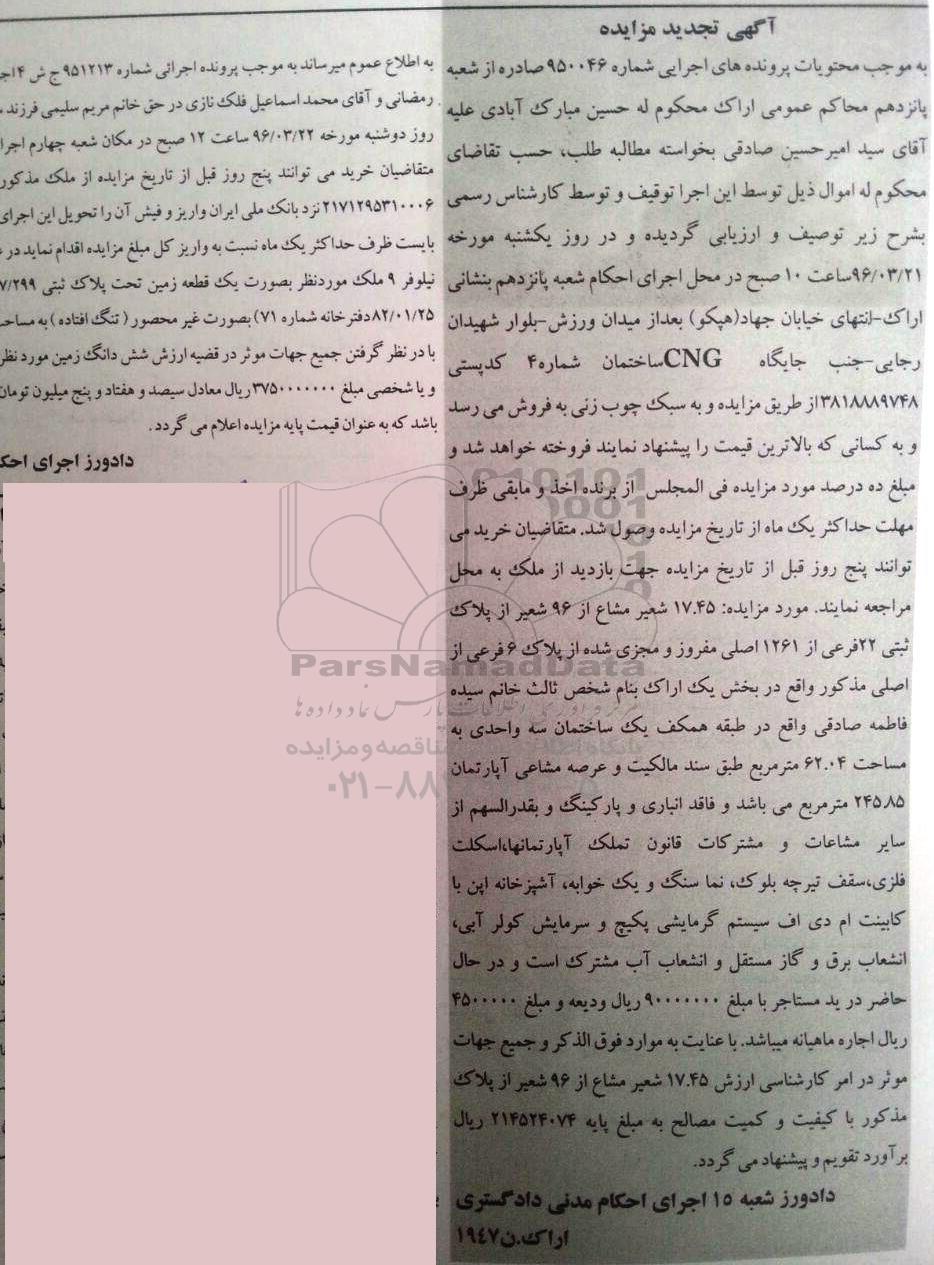 آگهی تجدید مزایده
به موجب محتویات پرونده های اجرایی شماره ۹۵۰۰۴۶ صادره از شعبه
پانزدهم محاکم عمومی اراک محکوم له حسین مبارک آبادی علیه
آقای سید امیرحسین صادقی بخواسته مطالبه طلب، حسب تقاضای
محکوم له اموال ذیل توسط این اجرا توقیف و توسط کارشناس رسمی
بشرح زیر توصیف و ارزیابی گردیده و در روز یکشنبه مورخه
۹۶/۰۳/۲۱ساعت ۱۰ صبح در محل اجرای احکام شعبه پانزدهم بنشانی
اراک-انتهای خیابان جهاد(هپکو) بعداز میدان ورزش-بلوار شهیدان
رجایی-جنب جایگاه CNGساختمان شماره۴ کدپستی
۳۸۱۸۸۸۹۷۴۸از طریق مزایده و به سبک چوب زنی به فروش می رسد
و به کسانی که بالاترین قیمت را پیشنهاد نمایند فروخته خواهد شد و
مبلغ ده درصد مورد مزایده فی المجلس از برنده اخذ و مابقی ظرف
مهلت حداکثر یک ماه از تاریخ مزایده وصول شد. متقاضیان خرید می
توانند پنج روز قبل از تاریخ مزایده جهت بازدید از ملک به محل
مراجعه نمایند. مورد مزایده: ۱۷.۴۵ شعیر مشاع از ۹۶ شعیر از پلاک
ثبتی ۲۲فرعی از ۱۲۶۱ اصلی مفروز و مجزی شده از پلاک ۶ فرعی از
اصلی مذکور واقع در بخش یک اراک بنام شخص ثالث خانم سیده
فاطمه صادقی واقع در طبقه همکف یک ساختمان سه واحدی به
مساحت ۶۲.۰۴ مترمربع طبق سند مالکیت و عرصه مشاعی آپارتمان
۲۴۵.۸۵ مترمربع می باشد و فاقد انباری و پارکینگ و بقدرالسهم از
سایر مشاعات و مشترکات قانون تملک آپارتمانها،اسکلت
فلزی،سقف تیرچه بلوک، نما سنگ و یک خوابه، آشپزخانه اپن با
کابینت ام دی اف سیستم گرمایشی پکیج و سرمایش کولر آبی،
انشعاب برق و گاز مستقل و انشعاب آب مشترک است و در حال
حاضر در ید مستاجر با مبلغ ۹۰۰۰۰۰۰۰ ریال ودیعه و مبلغ ۴۵۰۰۰۰۰
ریال اجاره ماهیانه میباشد. با عنایت به موارد فوق الذکر و جمیع جهات
موثر در امر کارشناسی ارزش ۱۷.۴۵ شعیر مشاع از ۹۶ شعیر از پلاک
مذکور با کیفیت و کمیت مصالح به مبلغ پایه ۲۱۴۵۲۴۰۷۴ ریال
برآورد تقویم و پیشنهاد می گردد.
دادورز شعبه ۱۵ اجرای احکام مدنی دادگستری
اراک.ن۱۹۴۷
به اطلاع عموم میرساند به موجب پرونده اجرائی شماره ۹۵۱۲۱۳ ج ش ۴ اجر
رمضانی و آقای محمد اسماعیل فلک نازی در حق خانم مریم سلیمی فرزند
روز دوشنبه مورخه ۹۶/۰۳/۲۲ ساعت ۱۲ صبح در مکان شعبه چهارم اجرا
متقاضیان خرید می توانند پنج روز قبل از تاریخ مزایده از ملک مذکور
۲۱۷۱۲۹۵۳۱۰۰۰۶ نزد بانک ملی ایران واریز و فیش آن را تحویل این اجرای
بایست ظرف حداکثر یک ماه نسبت به واریز کل مبلغ مزایده اقدام نماید در
نیلوفر ۹ ملک موردنظر بصورت یک قطعه زمین تحت پلاک ثبتی ۷/۲۹۹
۸۲/۰۱/۲۵دفترخانه شماره ۷۱) بصورت غیر محصور ( تنگ افتاده ) به مساحت
با در نظر گرفتن جمیع جهات موثر در قضیه ارزش شش دانگ زمین مورد نظر
و یا شخصی مبلغ ۳۷۵۰۰۰۰۰۰۰ ریال معادل سیصد و هفتاد و پنج میلیون تومان
باشد که به عنوان قیمت پایه مزایده اعلام می گردد.
دادورز اجرای احکا
ParsNamadData